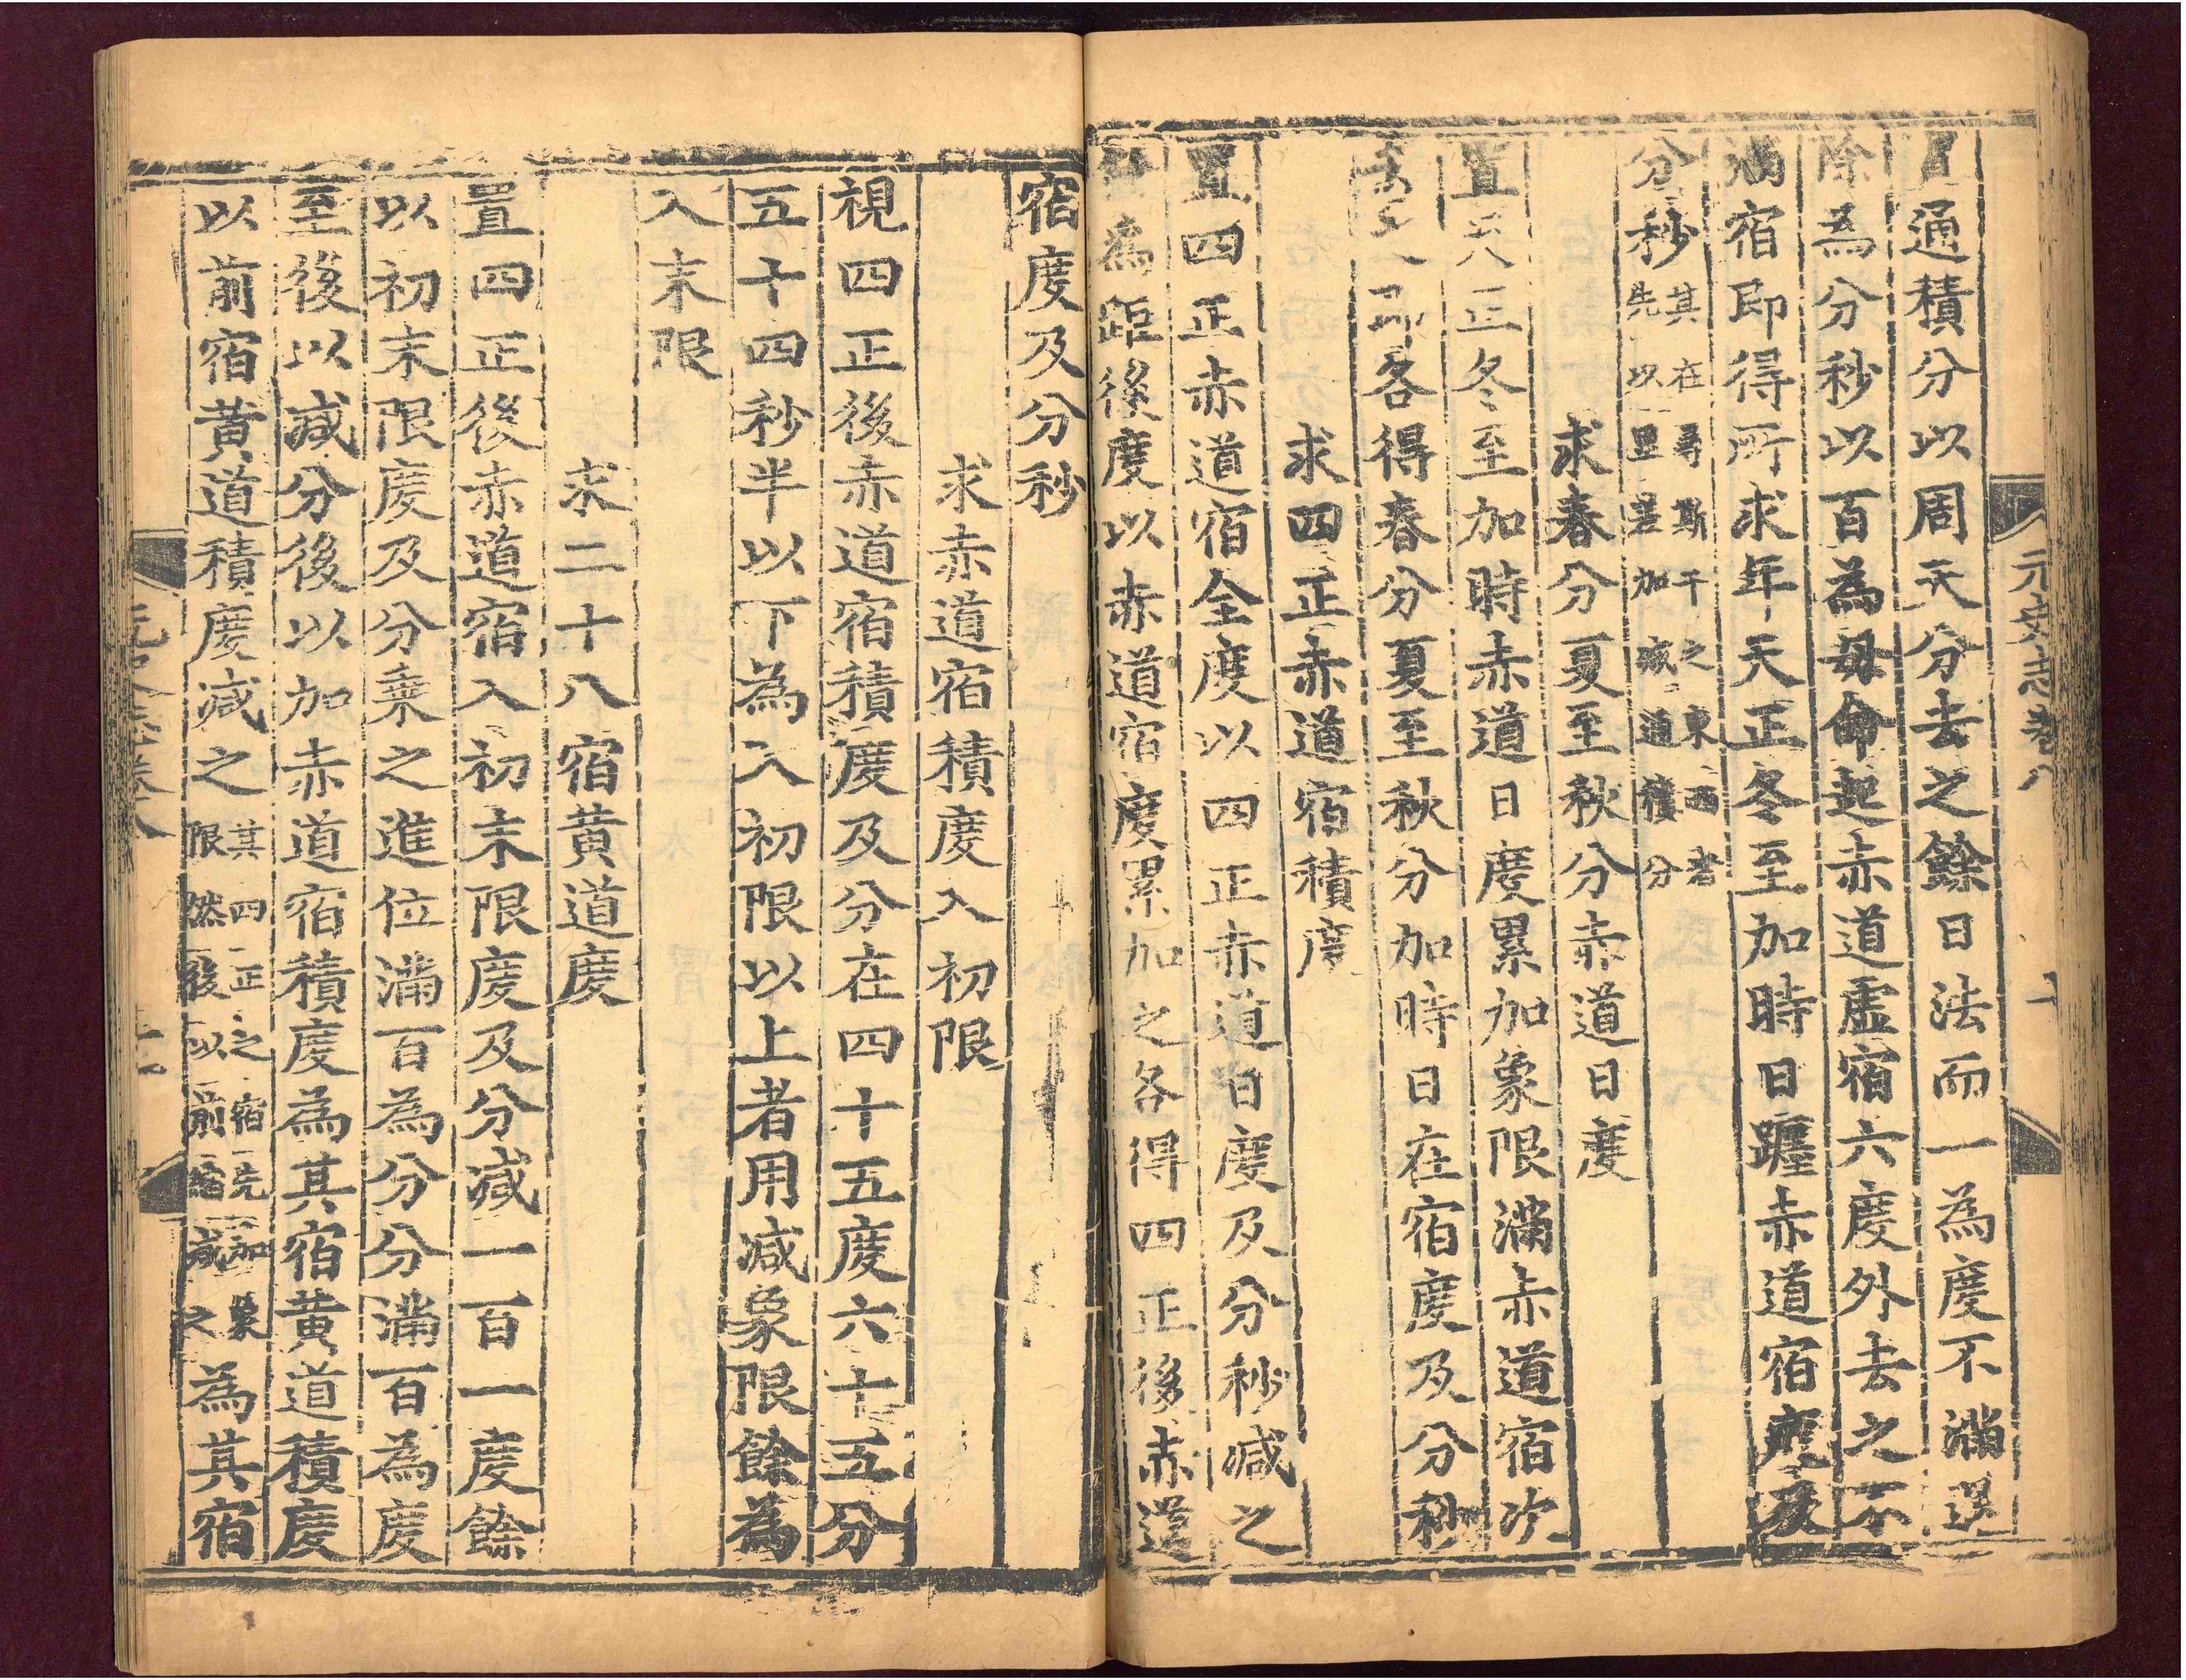 元史志卷八
置通積分以周天分去之餘日法而一為度不滿退
除為分秒以百為母命起赤道虛宿六度外去之不
滿宿即得所求年天正冬至加時日躔赤道宿度及
分秒其在尋斯干之東西者先以里差加減通積分
求春分夏至秋分赤道日度
置天正冬至加時赤道日度累加象限滿赤道宿次
去之即各得春分夏至秋分加時日在宿度及分秒
求四正赤道宿積度
置四正赤道宿全度以四正赤道日度及分秒減之
餘為距後度以赤道宿度累加之各得四正後赤道
宿度及分秒
求赤道宿積度入初限
視四正後赤道宿積度及分在四十五度六十五分
五十四秒半以下為入初限以上者用減象限餘為
入末限
求二十八宿黄道度
置四正後赤道宿入初末限度及分減一百一度餘
以初末限度及分乗之進位滿百為分分滿百為度
至後以減分後以加赤道宿積度為其宿黄道積度
以前宿黄道積度減之其四正之宿先加象限然後以前縮減之為其宿